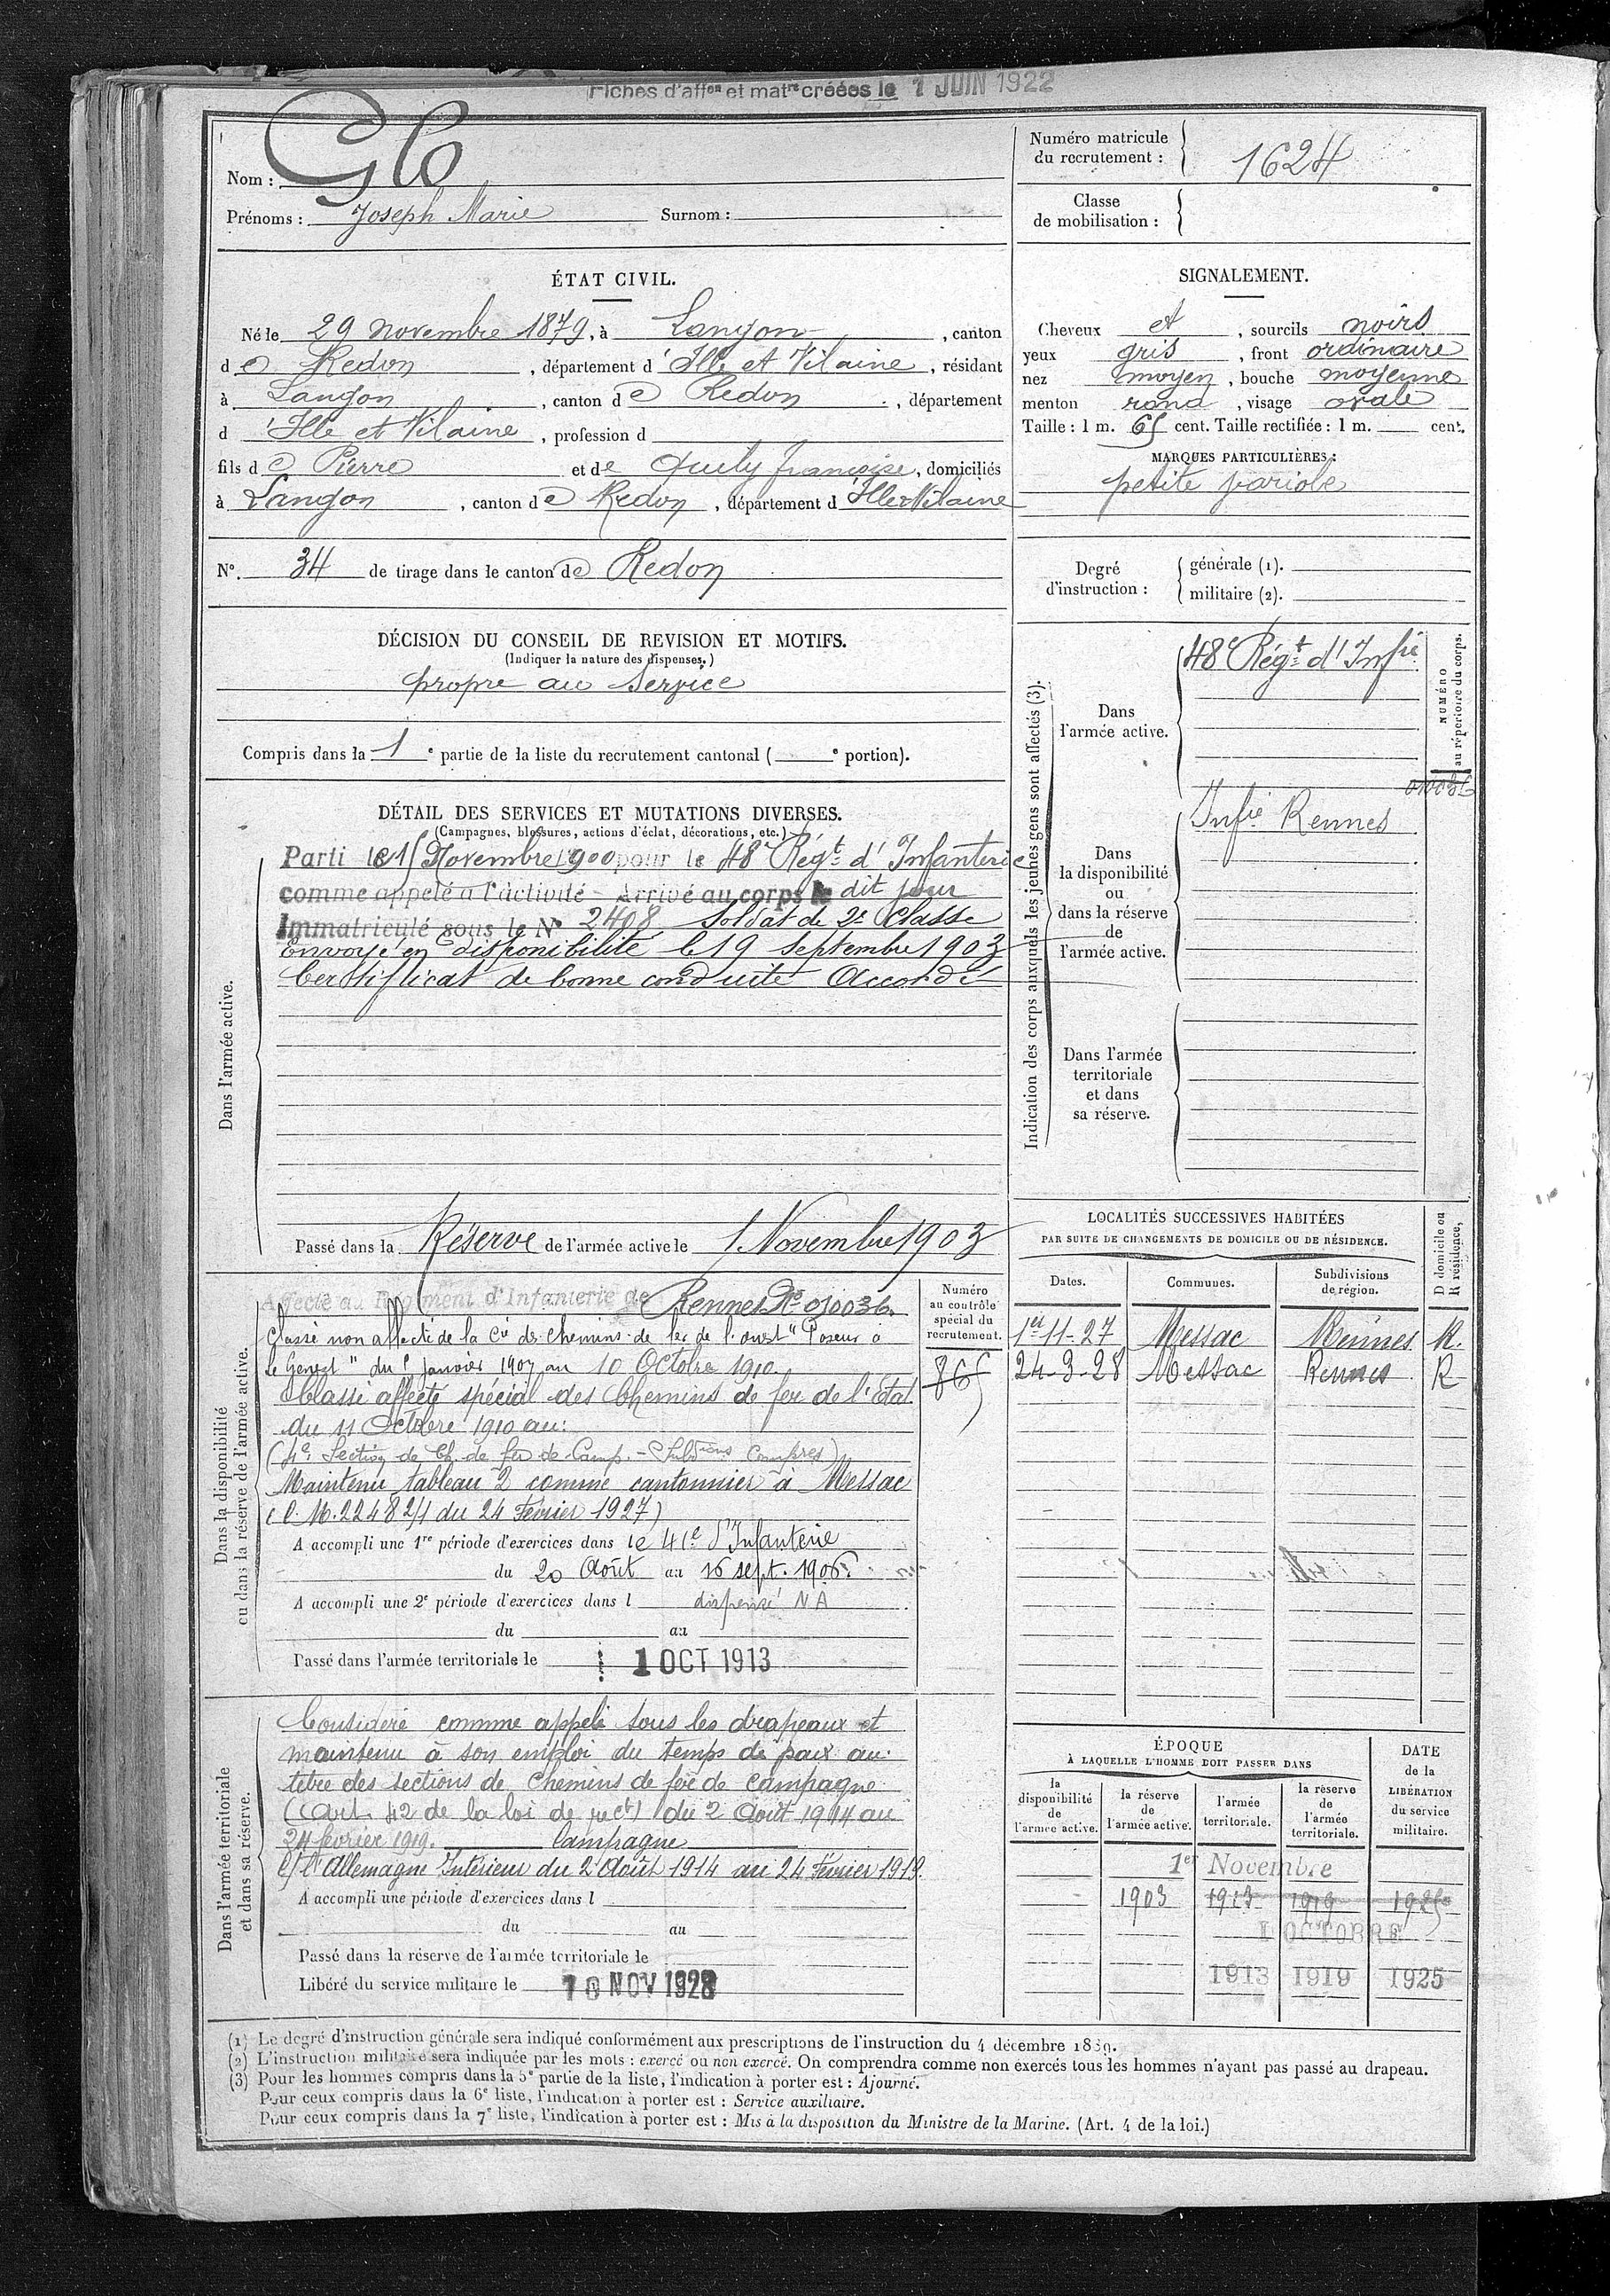 Fiches d'affon et matre créées le 1 JUIN 1922
Nom : Glo
Prénoms : Joseph Marie Surnom :
Numéro matricule du recrutement : 1624
Classe de mobilisation :
ÉTAT CIVIL.
Né le 29 novembre 1879, à Langon, canton
de Redon, département d'Ille et Vilaine, résidant
à Langon, canton de Redon, département
d'Ille et Vilaine, profession d
fils de Pierre et de Quély françoise, domiciliés
à Langon, canton de Redon, département d'Ille et Vilaine
N° 34 de tirage dans le canton de Redon
SIGNALEMENT.
Cheveux et, sourcils noirs
yeux gris, front ordinaire
nez moyen, bouche moyenne
menton rond, visage ovale
Taille : 1 m. 65 cent. Taille rectifiée : 1 m. cent.
MARQUES PARTICULIÈRES :
petite variole
Degré d'instruction : générale (1).
militaire (2).
DÉCISION DU CONSEIL DE REVISION ET MOTIFS.
(Indiquer la nature des dispenses.)
propre au service
Compris dans la 1e partie de la liste du recrutement cantonal ( e portion).
DÉTAIL DES SERVICES ET MUTATIONS DIVERSES.
(Campagnes, blessures, actions d'éclat, décorations, etc.)
Dans l'armée active.
Parti le 15 Novembre 1900 pour le 48e Régt d'Infanterie
comme appelé à l'activité - Arrivé au corps le dit jour
Immatriculé sous le N° 2408 Soldat de 2e Classe
Envoyé en disponibilité le 19 Septembre 1903
Certificat de bonne conduite Accordé
Passé dans la Réserve de l'armée active le 1 Novembre 1903
Indication des corps auxquels les jeunes gens sont affectés (3).
NUMÉRO au répertoire du corps.
Dans l'armée active.
48e Régt d'Infie
010036
Dans la disponibilité ou dans la réserve de l'armée active.
Infie Rennes
Dans l'armée territoriale et dans sa réserve.
Dans la disponibilité ou dans la réserve de l'armée active.
Numéro au contrôle spécial du recrutement.
865
Affecté au Régiment d'Infanterie de Rennes No 010036.
Classé non affecté de la Cie des Chemins de fer de l'ouest "Poseur à
Le Genest" du 1 janvier 1907 au 10 Octobre 1910.
Classé affecté spécial des Chemins de fer de l'Etat
du 11 Octobre 1910 au:
(4e Section de Ch. de fer de Camp. - Subdions Compres)
Maintenu tableau 2 comme cantonnier à Messac
(C.M. 22482/1 du 24 Février 1927)
A accompli une 1re période d'exercices dans le 41e d'Infanterie
du 20 Août au 16 sept. 1906.
A accompli une 2e période d'exercices dans l dispensé NA
du au
Passé dans l'armée territoriale le 1 OCT 1913
LOCALITÉS SUCCESSIVES HABITÉES
PAR SUITE DE CHANGEMENTS DE DOMICILE OU DE RÉSIDENCE.
Dates. Communes. Subdivisions de région. D domicile ou R résidence,
1er-11-27 Messac Rennes R.
24-3-28 Messac Rennes R
Dans l'armée territoriale et dans sa réserve.
Considéré comme appelé sous les drapeaux et
maintenu à son emploi du temps de paix au
titre des sections de chemins de fer de campagne
(Art. 42 de la loi de rect) du 2 Août 1914 au
24 février 1919. Campagne
c/ l'Allemagne Intérieur du 2 Août 1914 au 24 Février 1919.
A accompli une période d'exercices dans l
du au
Passé dans la réserve de l'armée territoriale le
Libéré du service militaire le 10 NOV 1928
ÉPOQUE À LAQUELLE L'HOMME DOIT PASSER DANS
DATE de la LIBÉRATION du service militaire.
la disponibilité de l'armée active. la réserve de l'armée active. l'armée territoriale. la réserve de l'armée territoriale.
1er Novembre
1903 1913 1919 1925
1 OCTOBRE
1913 1919 1925
(1) Le degré d'instruction générale sera indiqué conformément aux prescriptions de l'instruction du 4 décembre 1889.
(2) L'instruction militaire sera indiquée par les mots : exercé ou non exercé. On comprendra comme non exercés tous les hommes n'ayant pas passé au drapeau.
(3) Pour les hommes compris dans la 5e partie de la liste, l'indication à porter est : Ajourné.
Pour ceux compris dans la 6e liste, l'indication à porter est : Service auxiliaire.
Pour ceux compris dans la 7e liste, l'indication à porter est : Mis à la disposition du Ministre de la Marine. (Art. 4 de la loi.)